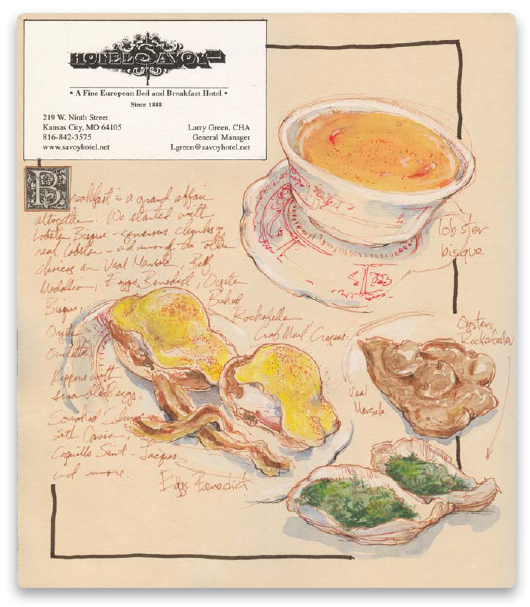 HOTEL SAVOY
• A Fine European Bed and Breakfast Hotel •
Since 1888
219 W. Ninth Street
Kansas City, MO 64105
816-842-3575
www.savoyhotel.net
Larry Green, CHA
General Manager
Lgreen@savoyhotel.net
Breakfast is a grand affair
altogether. We started with
Lobster Bisque - generous chunks of
real lobster - among the other
choices are Veal Marsala, Beef
Medallions, Eggs Benedict, Oyster
Bisque, Baked
Oysters Rockefeller
Omelette, Crab Meat Crepes,
with
Salmon
with Caviar,
Coquille Saint-Jacques
and more.
lobster
bisque
Eggs Benedict
Veal
Marsala
Oysters
Rockefeller